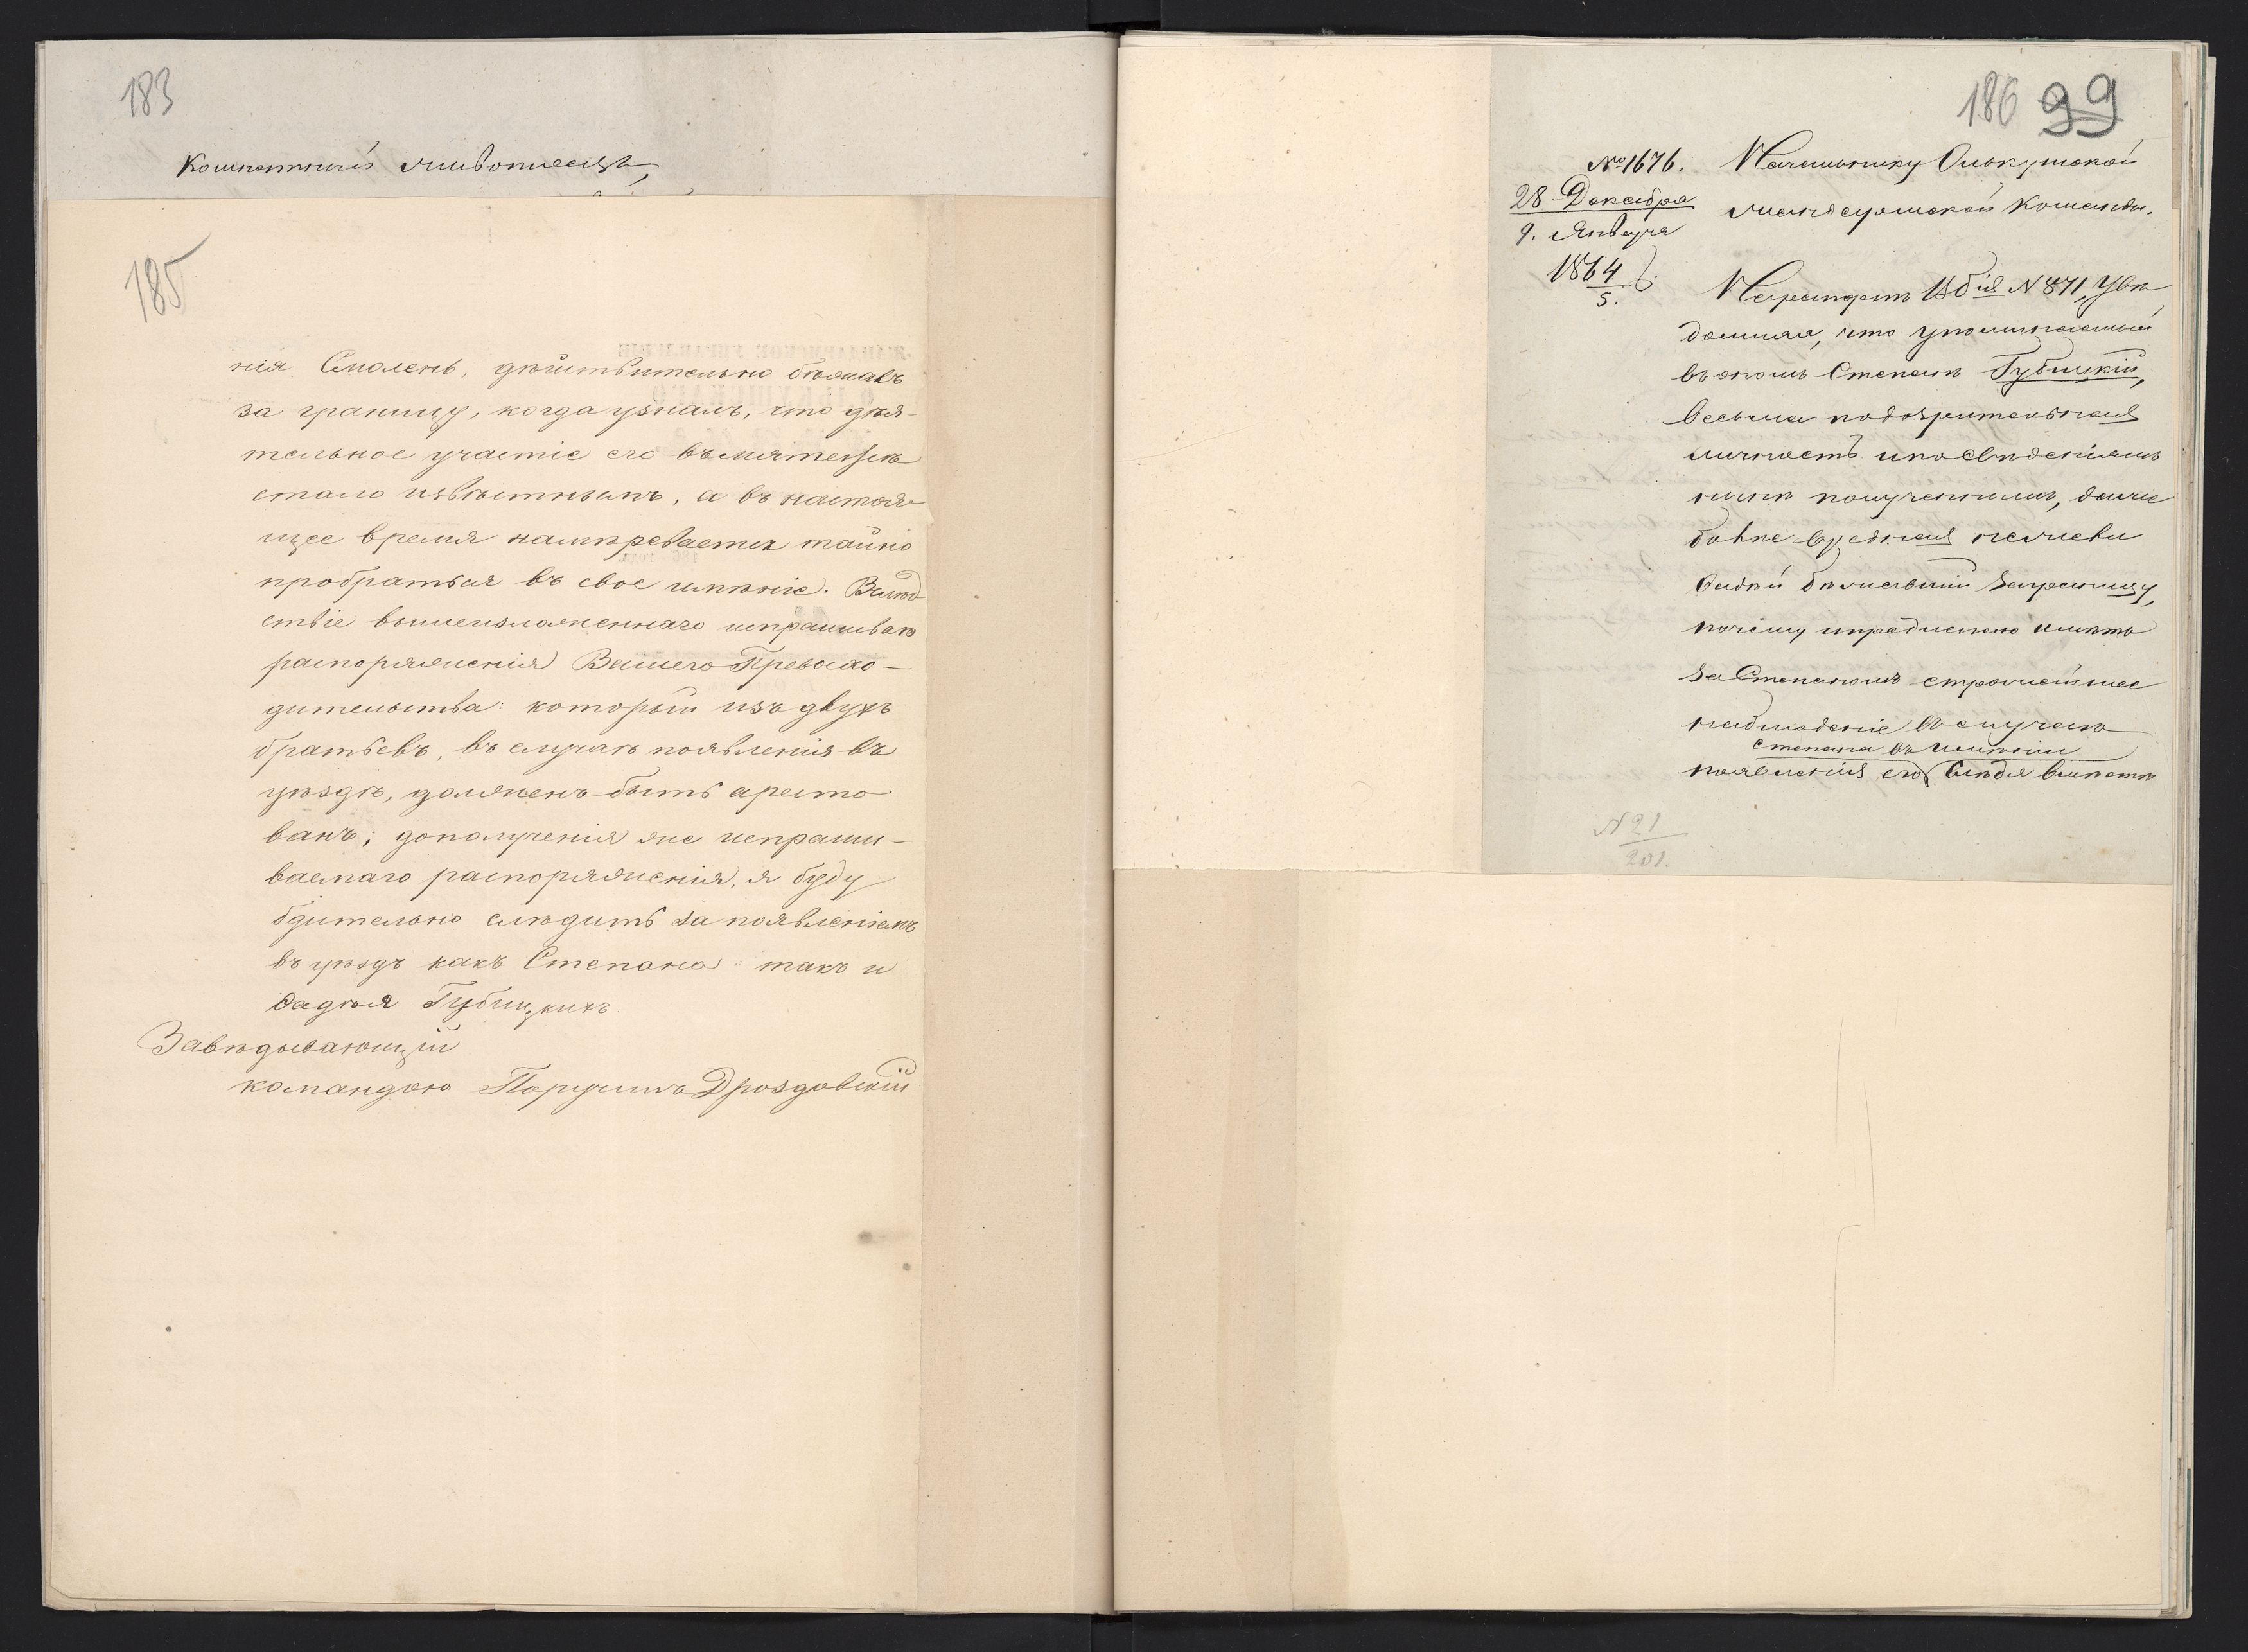 183
Комнатный живописецъ,
185
нія Смолень, дѣйствительно бѣжавъ
за границу, когда узналъ, что дѣя-
тельное участіе его въ мятежѣ
стало извѣстнымъ, а въ настоя-
щее время намѣревается тайно
пробраться въ свое имѣніе. Вслѣд
ствіе вышеизложеннаго испрашиваю
распоряженія Вашего Превосхо-
дительства: который изъ двухъ
братьевъ, въ случаѣ появленія въ
уѣздѣ, долженъ быть аресто
ванъ; до полученія же испраши-
ваемаго распоряженія, я буду
бдительно слѣдить за появленіемъ
въ уѣздъ какъ Степана такъ и
Фадѣя Губицкихъ.
Завѣдывающій
командою Поручикъ Дроздовскій
186 99
№ 1676.
28 Декабря
9. Января
1864
5.
Начальнику Олькушской
жандармской команды.
На рапортъ № 871, увѣ
домляю, что упоминаемый
въ ономъ Степанъ Губицкій,
весьма подозрительная
личность и по свѣденіямъ
мною полученнымъ, далее
болѣе вредная нежели
Фадѣй бѣжавшій заграницу,
почему и предписано имѣть
за Степаномъ строжайшее
наблюденіе въ случаѣ
Степана въ имѣніи
появленія его
N 21
201.